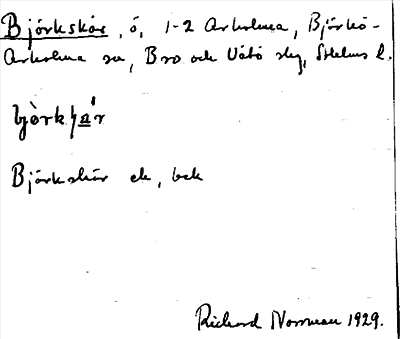 Björkskär, ö, 1-2 Arholma, Björkö-
Arholma sn, Bro och Vätö skg, Sthlms l.
Björkskär ek, bek
Richard Norrman 1929.